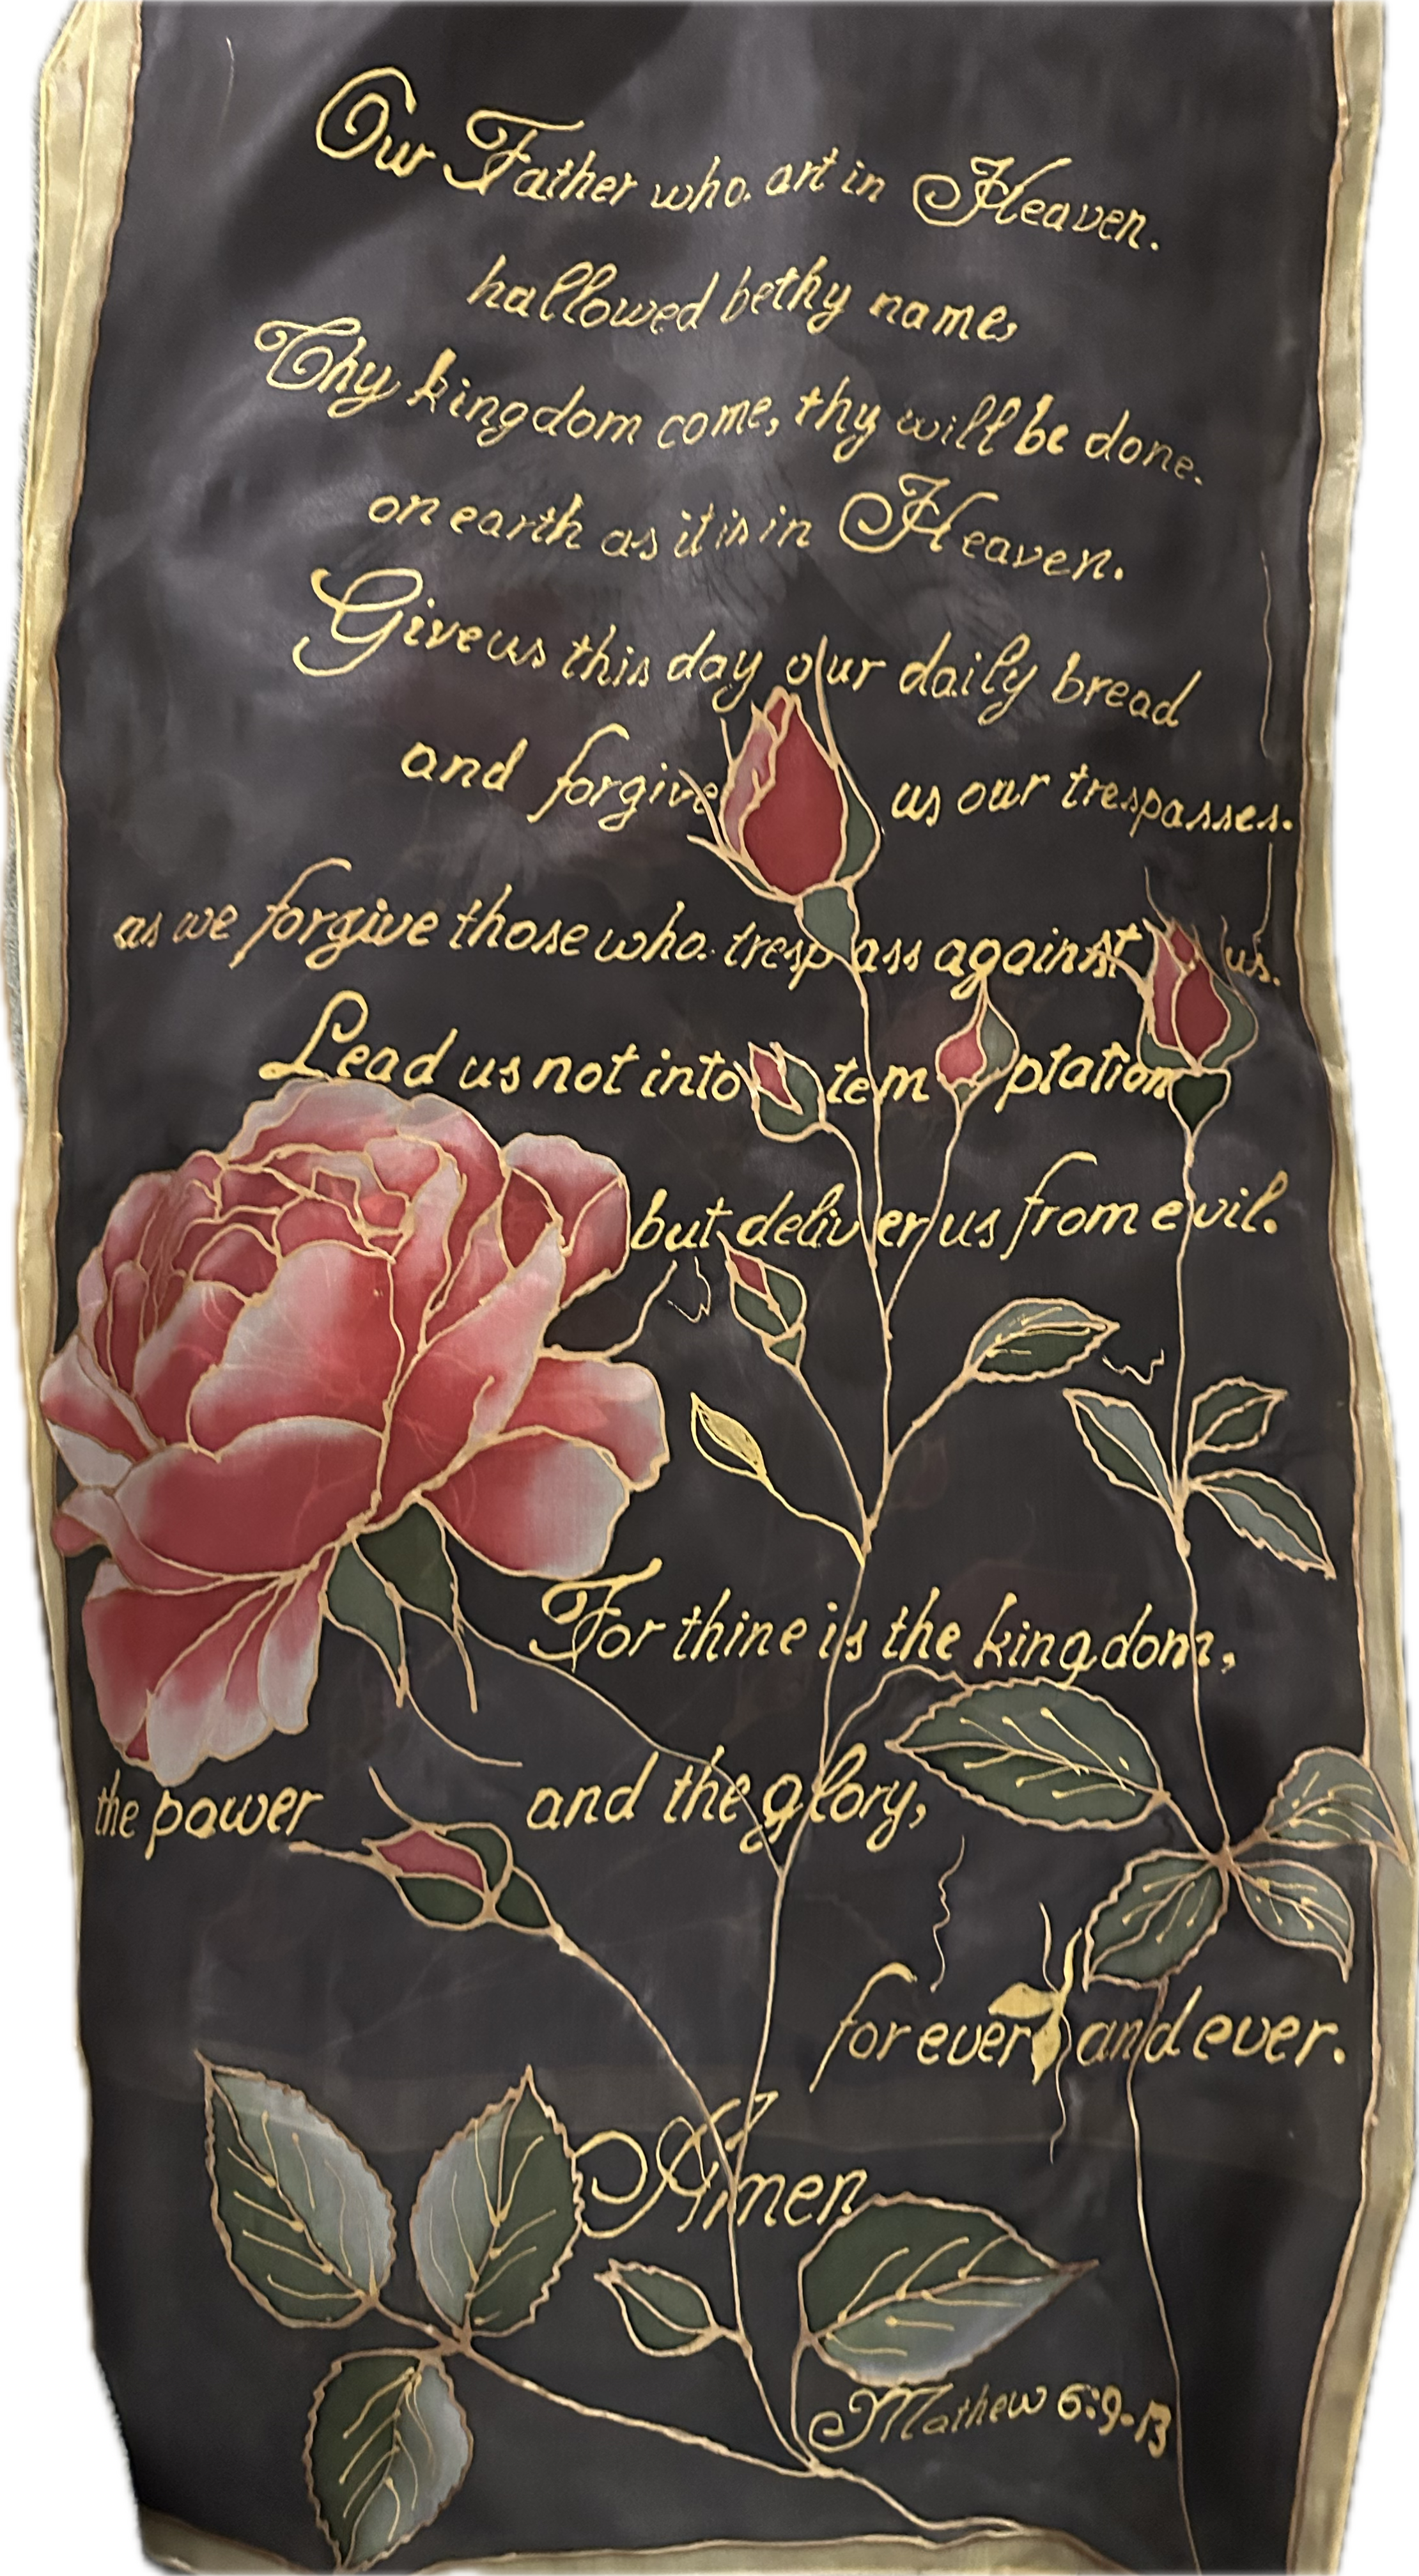 Our Father who. art in Heaven.
hallowed be thy name,
Thy kingdom come, thy will be done.
on earth as it is in Heaven.
Give us this day our daily bread
and forgive us our trespasses.
as we forgive those who. trespass against us.
Lead us not into temptation
but deliver us from evil.
For thine is the kingdom,
the power and the glory,
for ever and ever.
Amen
Mathew 6:9-13